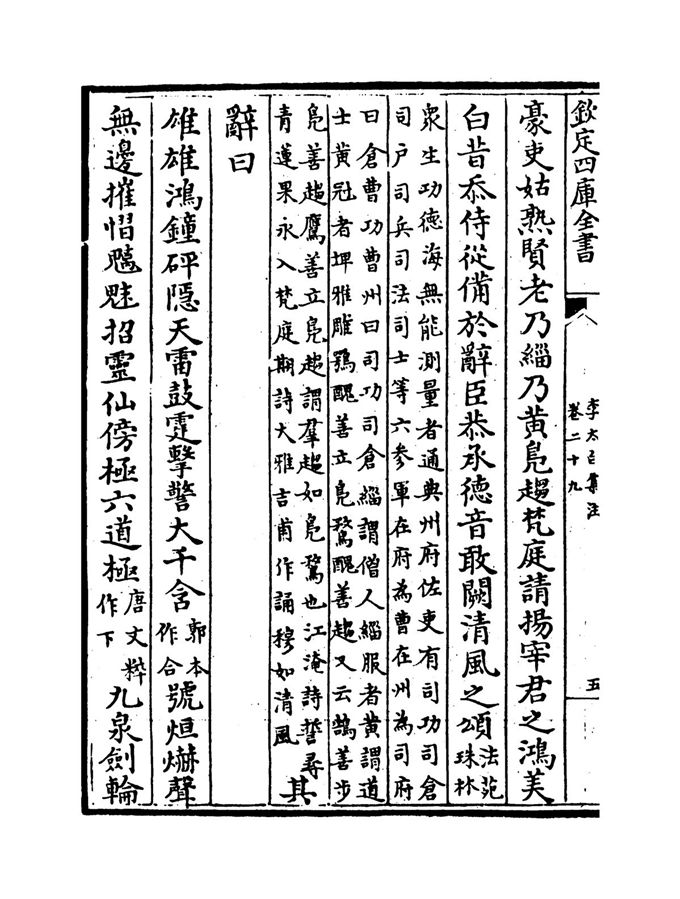 欽定四庫全書
李太白集注
卷二十九
五
豪吏姑熟賢老乃緇乃黄鳧趨梵庭請揚宰君之鴻美
白昔忝侍從備於辭臣恭承德音敢闕清風之頌
法苑
珠林
衆生功德海無能測量者通典州府佐吏有司功司倉
司户司兵司法司士等六參軍在府為曹在州為司府
曰倉曹功曹州曰司功司倉緇謂僧人緇服者黄謂道
士黄冠者埤雅雕鶚醜善立鳧鶩醜善趨又云鵠善步
鳧善趨鷹善立鳧趨謂羣趨如鳧鶩也江淹詩誓尋
青蓮果永入梵庭期詩大雅吉甫作誦穆如清風
其
辭曰
雄雄鴻鐘砰隱天雷鼓霆擊警大千含
郭本
作合
號烜爀聲
無邊摧慴魑魅招靈仙傍極六道極
唐文粹
作下
九泉劍輪